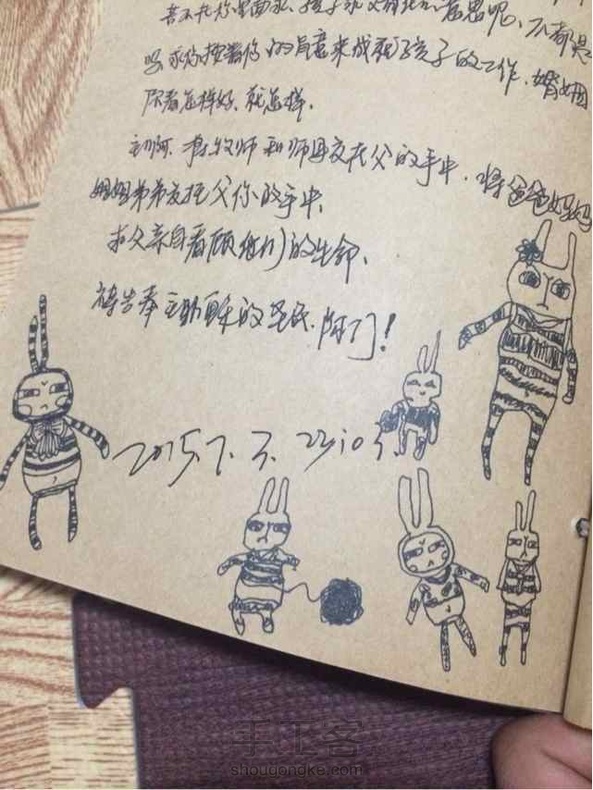 孩子
吗 求你按着你 的旨意来成就孩子的工作、婚姻
你看怎样好、就怎样、
主啊、将牧师和师母交在父的手中、将爸爸妈妈
姐姐弟弟交托父你的手中、
求父亲自看顾他们的生命、
祷告奉主耶稣的圣名、阿门！
2015.7.3. 23:03
手工客
shougongke.com